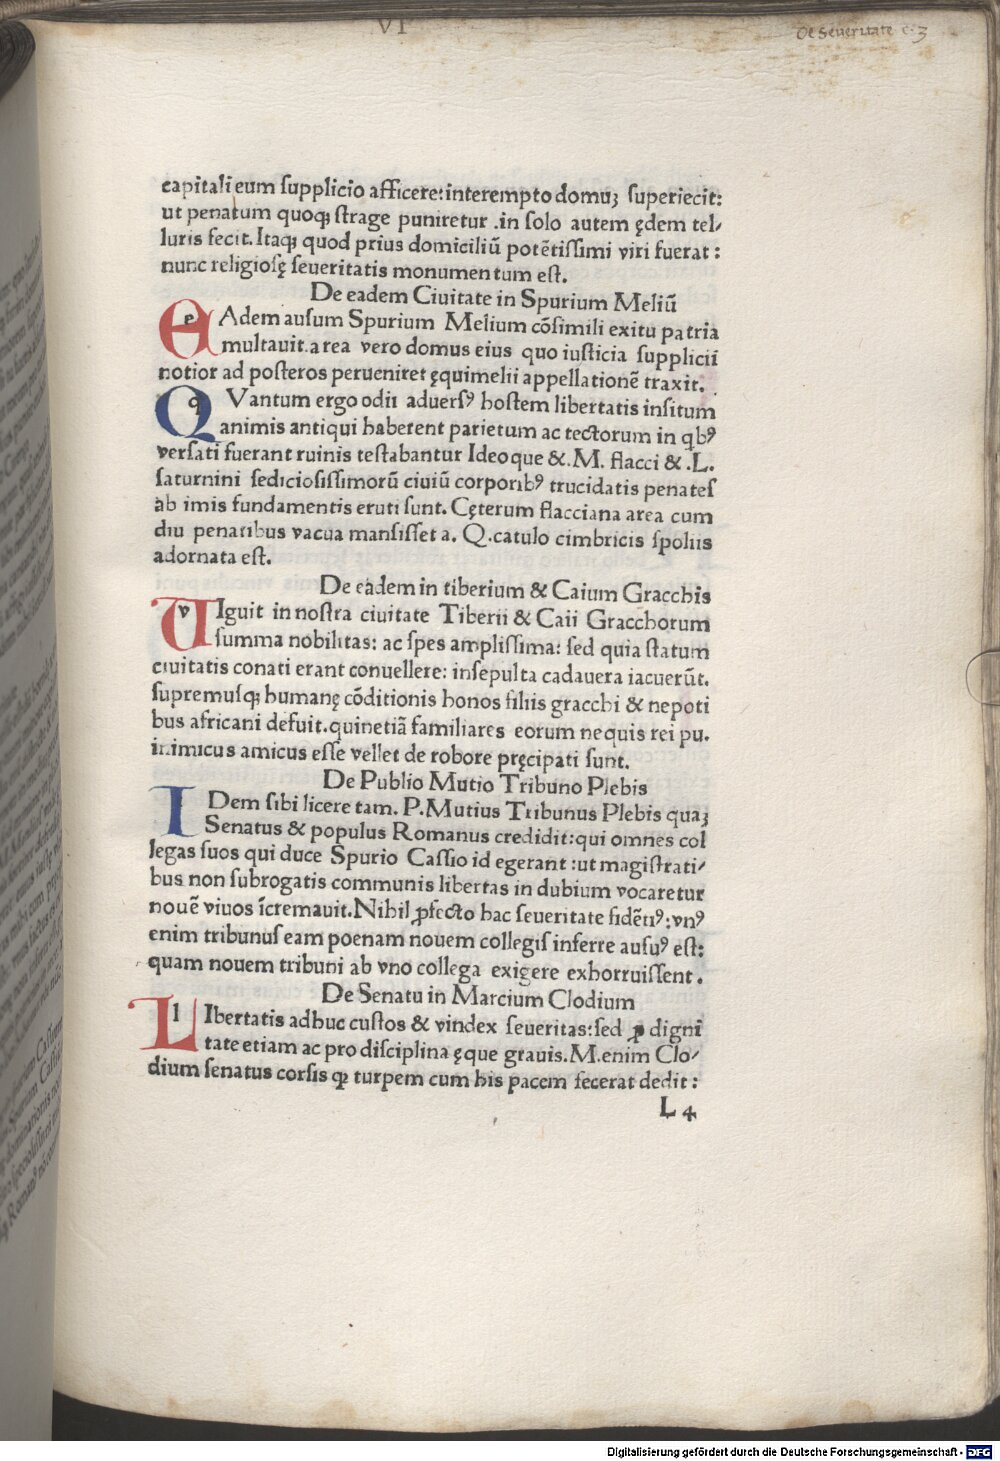 VI
De Seueritate c. 3
capitali eum ſupplicio afficere:interempto domuꝫ ſuperiecit:
ut penatum quoqꝫ ſtrage puniretur .in ſolo autem ędem tel⸗
luris fecit. Itaqꝫ quod prius domiciliū potētiſſimi viri fuerat :
nunc religioſę ſeueritatis monumentum eſt.
De eadem Ciuitate in Spurium Meliū
eAdem auſum Spurium Melium cōſimili exitu patria
multauit.area vero domus eius quo iuſticia ſupplicii
notior ad poſteros perueniret ęquimelii appellationē traxit.
QVantum ergo odii aduerſꝰ hoſtem libertatis inſitum
animis antiqui haberent parietum ac tectorum in qbꝰ
verſati fuerant ruinis teſtabantur Ideoque &.M. flacci & .L.
ſaturnini ſedicioſiſſimorū ciuiū corporibꝰ trucidatis penateſ
ab imis fundamentis eruti ſunt. Cęterum flacciana area cum
diu penatibus vacua manſiſſet a. Q.catulo cimbricis ſpoliis
adornata eſt.
De eadem in tiberium & Caium Gracchis
VIguit in noſtra ciuitate Tiberii & Caii Gracchorum
ſumma nobilitas: ac ſpes ampliſſima: ſed quia ſtatum
ciuitatis conati erant conuellere: inſepulta cadauera iacuerūt.
ſupremuſqꝫ humanę cōditionis honos filiis gracchi & nepoti
bus africani defuit.quinetiā familiares eorum ne quis rei pu.
inimicus amicus eſſe vellet de robore pręcipati ſunt.
De Publio Mutio Tribuno Plebis
IDem ſibi licere tam. P.Mutius Tribunus Plebis quaꝫ
Senatus & populus Romanus credidit:qui omnes col
legas ſuos qui duce Spurio Caſſio id egerant :ut magiſtrati⸗
bus non ſubrogatis communis libertas in dubium vocaretur
nouē viuos īcremauit.Nihil ꝓfecto hac ſeueritate fidētiꝰ:vnꝰ
enim tribunuſ eam poenam nouem collegiſ inferre auſuꝰ eſt:
quam nouem tribuni ab vno collega exigere exhorruiſſent .
De Senatu in Marcium Clodium
LIbertatis adhuc cuſtos & vindex ſeueritas:ſed ꝓ digni
tate etiam ac pro diſciplina ęque grauis.M.enim Clo⸗
dium ſenatus corſis ꝙ turpem cum his pacem fecerat dedit :
L 4
Digitalisierung gefördert durch die Deutsche Forschungsgemeinschaft - DFG